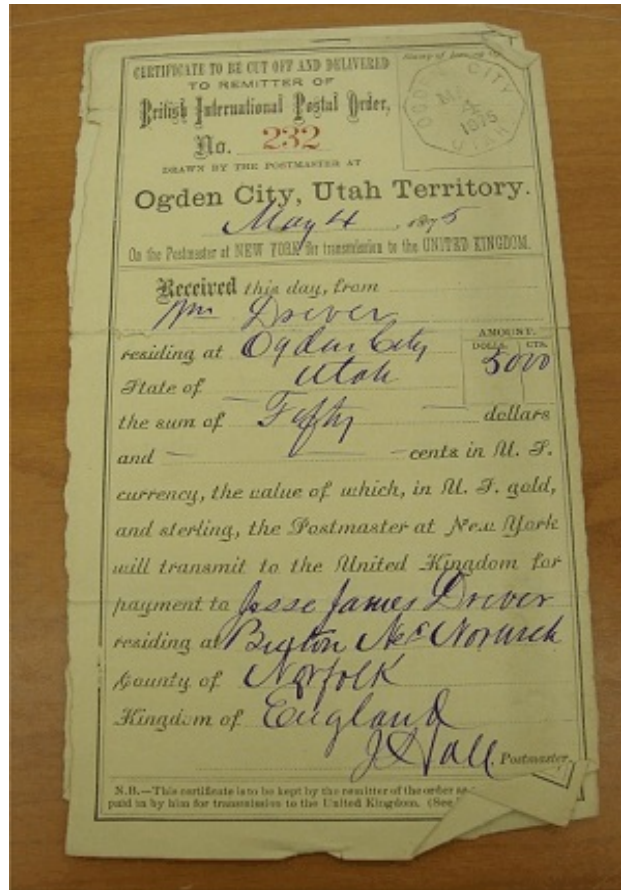 CERTIFICATE TO BE CUT OFF AND DELIVERED
TO REMITTER OF
British International Postal Order,
No. 232
DRAWN BY THE POSTMASTER AT
Ogden City, Utah Territory.
May 4, 1875
On the Postmaster at NEW YORK for transmission to the UNITED KINGDOM.
OGDEN CITY
MAY
4
1875
UTAH
Received this day, from
Wm Driver
residing at Ogden City
State of Utah
AMOUNT.
DOLLS. CTS.
50 00
the sum of Fifty dollars
and cents in U. S.
currency, the value of which, in U. S. gold,
and sterling, the Postmaster at New York
will transmit to the United Kingdom for
payment to Jesse James Driver
residing at Buxton Nr Norwich
County of Norfolk
Kingdom of England
Hall Postmaster.
N.B.—This certificate is to be kept by the remitter of the order as
paid in by him for transmission to the United Kingdom. (See